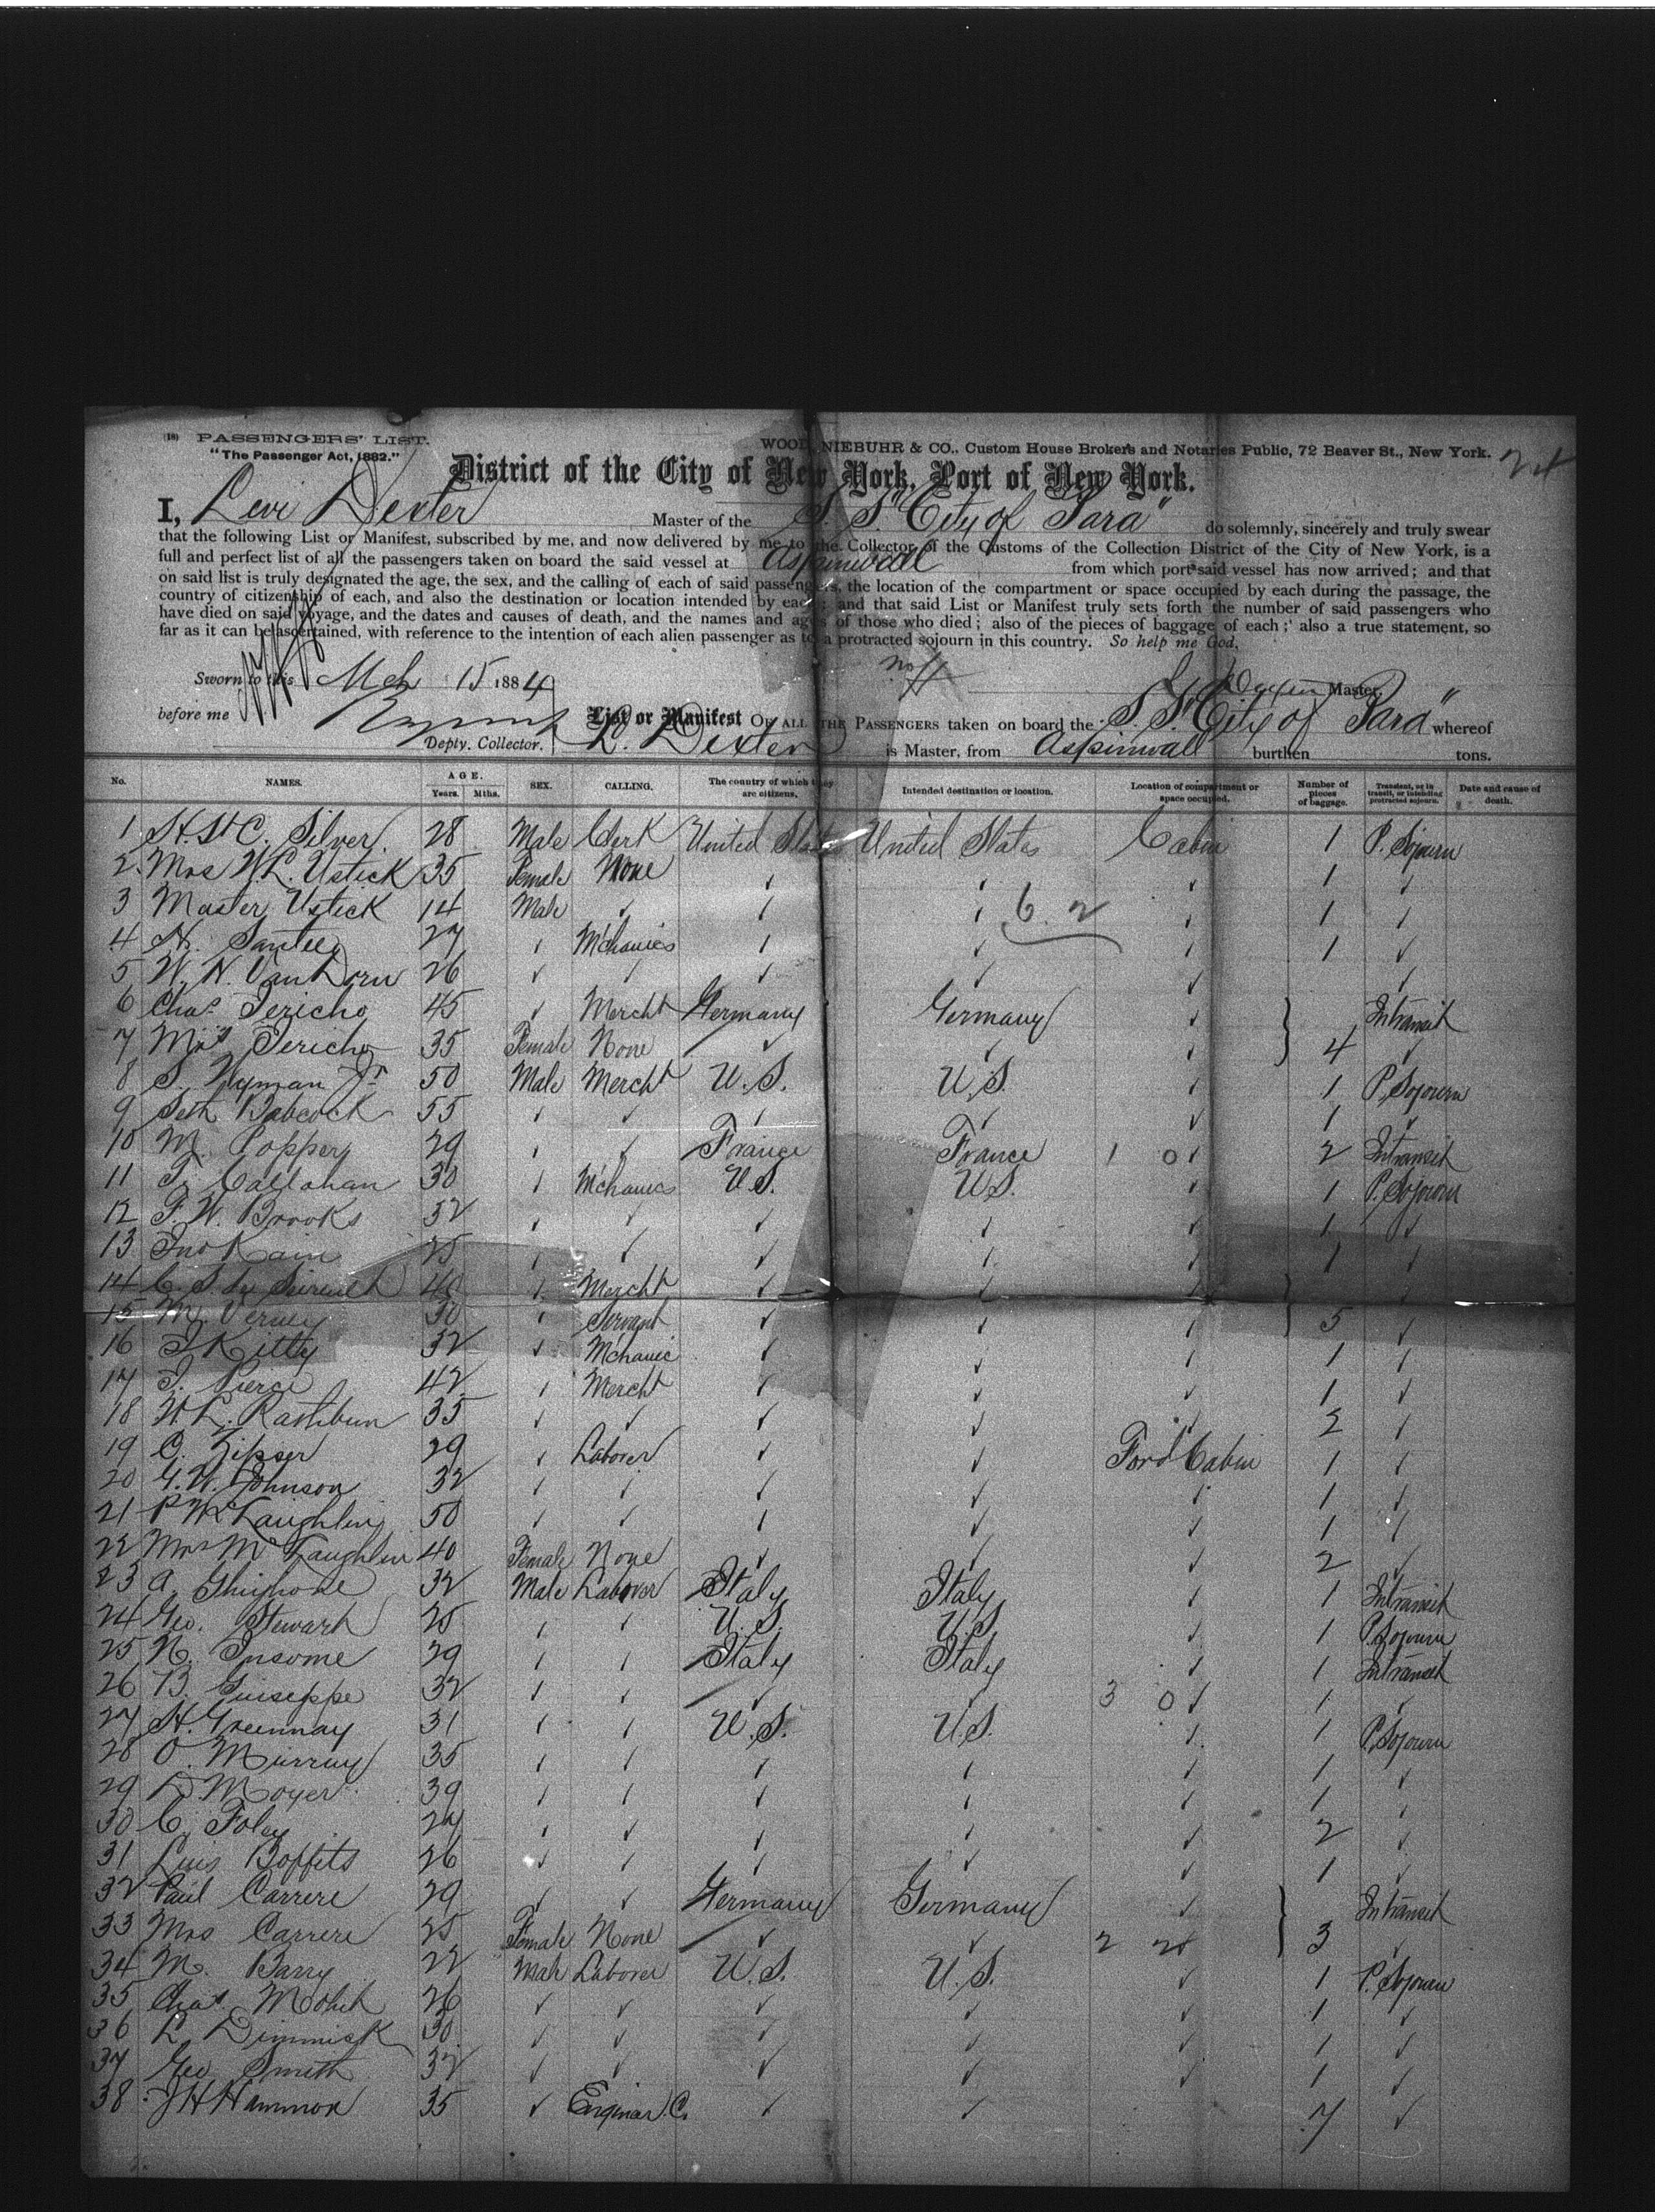 (18) PASSENGERS' LIST.
"The Passenger Act, 1882."
WOOD, NIEBUHR & CO., Custom House Brokers and Notaries Public, 72 Beaver St., New York.
District of the City of New York, Port of New York.
I, Levi Dexter Master of the S. S "City of Para" do solemnly, sincerely and truly swear
that the following List or Manifest, subscribed by me, and now delivered by me to the Collector of the Customs of the Collection District of the City of New York, is a
full and perfect list of all the passengers taken on board the said vessel at Aspinwall from which port said vessel has now arrived; and that
on said list is truly designated the age, the sex, and the calling of each of said passengers, the location of the compartment or space occupied by each during the passage, the
country of citizenship of each, and also the destination or location intended by each; and that said List or Manifest truly sets forth the number of said passengers who
have died on said voyage, and the dates and causes of death, and the names and ages of those who died; also of the pieces of baggage of each; also a true statement, so
far as it can be ascertained, with reference to the intention of each alien passenger as to a protracted sojourn in this country. So help me God.
Sworn to this Mch 15 1884 Master.
before me
List or Manifest OF ALL THE PASSENGERS taken on board the S. S "City of Para" whereof
Depty. Collector. L. Dexter is Master, from Aspinwall burthen tons.
No. NAMES. AGE. Years. Mths. SEX. CALLING. The country of which they are citizens. Intended destination or location. Location of compartment or space occupied. Number of pieces of baggage. Transient, or in transit, or intending protracted sojourn. Date and cause of death.
1 H. St C. Silver 28 Male Clerk United States United States Cabin 1 P. Sojourn
2 Mrs W. L. Ustick 35 Female None ✓ ✓ ✓ 1 ✓
3 Master Ustick 14 Male ✓ ✓ ✓ 6 2 ✓ 1 ✓
4 H. Santee 27 ✓ Mchanics ✓ ✓ ✓ 1 ✓
5 W. N. Van Dorn 26 ✓ ✓ ✓ ✓ ✓ ✓
6 Chas Jericho 45 ✓ Mercht Germany Germany ✓ Intransit
7 Mrs Jericho 35 Female None ✓ ✓ ✓ 4 ✓
8 S. Wyman Jr 50 Male Mercht U.S. U.S. ✓ 1 P. Sojourn
9 Seth Babcock 55 ✓ ✓ ✓ ✓ ✓ 1 ✓
10 M. Popper 29 ✓ ✓ France France 1 0 ✓ 2 Intransit
11 T. Callahan 30 ✓ Mchanics U.S. U.S. ✓ 1 P. Sojourn
12 F. W. Brooks 32 ✓ ✓ ✓ ✓ ✓ 1 ✓
13 Jno Kain 25 ✓ ✓ ✓ ✓ ✓ 1 ✓
14 C. S. 40 ✓ Mercht ✓ ✓ ✓
15 M. Verney 30 ✓ Servant ✓ ✓ ✓ 5 ✓
16 J Kitty 32 ✓ Mchanic ✓ ✓ ✓ 1 ✓
17 J. Pierce 42 ✓ Mercht ✓ ✓ ✓ 1 ✓
18 W. L. Rathbun 35 ✓ ✓ ✓ ✓ ✓ 2 ✓
19 C. Zipser 29 ✓ Laborer ✓ ✓ Ford Cabin 1 ✓
20 G. W. Johnson 32 ✓ ✓ ✓ ✓ ✓ 1 ✓
21 P McLaughlin 50 ✓ ✓ ✓ ✓ ✓ 1 ✓
22 Mrs McLaughlin 40 Female None ✓ ✓ ✓ 2 ✓
23 A. 32 Male Laborer Italy Italy ✓ 1 Intransit
24 Geo. Stewart 25 ✓ ✓ U.S. U.S. ✓ 1 P. Sojourn
25 N. Insome 29 ✓ ✓ Italy Italy ✓ 1 Intransit
26 B. Guiseppe 32 ✓ ✓ ✓ ✓ 3 0 ✓ 1 ✓
27 H. Greenway 31 ✓ ✓ U.S. U.S. ✓ 1 P. Sojourn
28 O. Murray 35 ✓ ✓ ✓ ✓ ✓ 1 ✓
29 D. Moyer 39 ✓ ✓ ✓ ✓ ✓ 1 ✓
30 C. Foley 27 ✓ ✓ ✓ ✓ ✓ 2 ✓
31 Luis Boffits 26 ✓ ✓ ✓ ✓ ✓ 1 ✓
32 Paul Carrere 29 ✓ ✓ Germany Germany ✓ Intransit
33 Mrs Carrere 25 Female None ✓ ✓ 2 2 3 ✓
34 M. Barry 22 Male Laborer U.S. U.S. ✓ 1 P. Sojourn
35 Chas. Mohit 26 ✓ ✓ ✓ ✓ ✓ 1 ✓
36 L. Dimmick 30 ✓ ✓ ✓ ✓ ✓ 1 ✓
37 Geo Smith 32 ✓ ✓ ✓ ✓ ✓ 1 ✓
38 J H Hammon 35 ✓ Enginar. C. ✓ ✓ 7 ✓